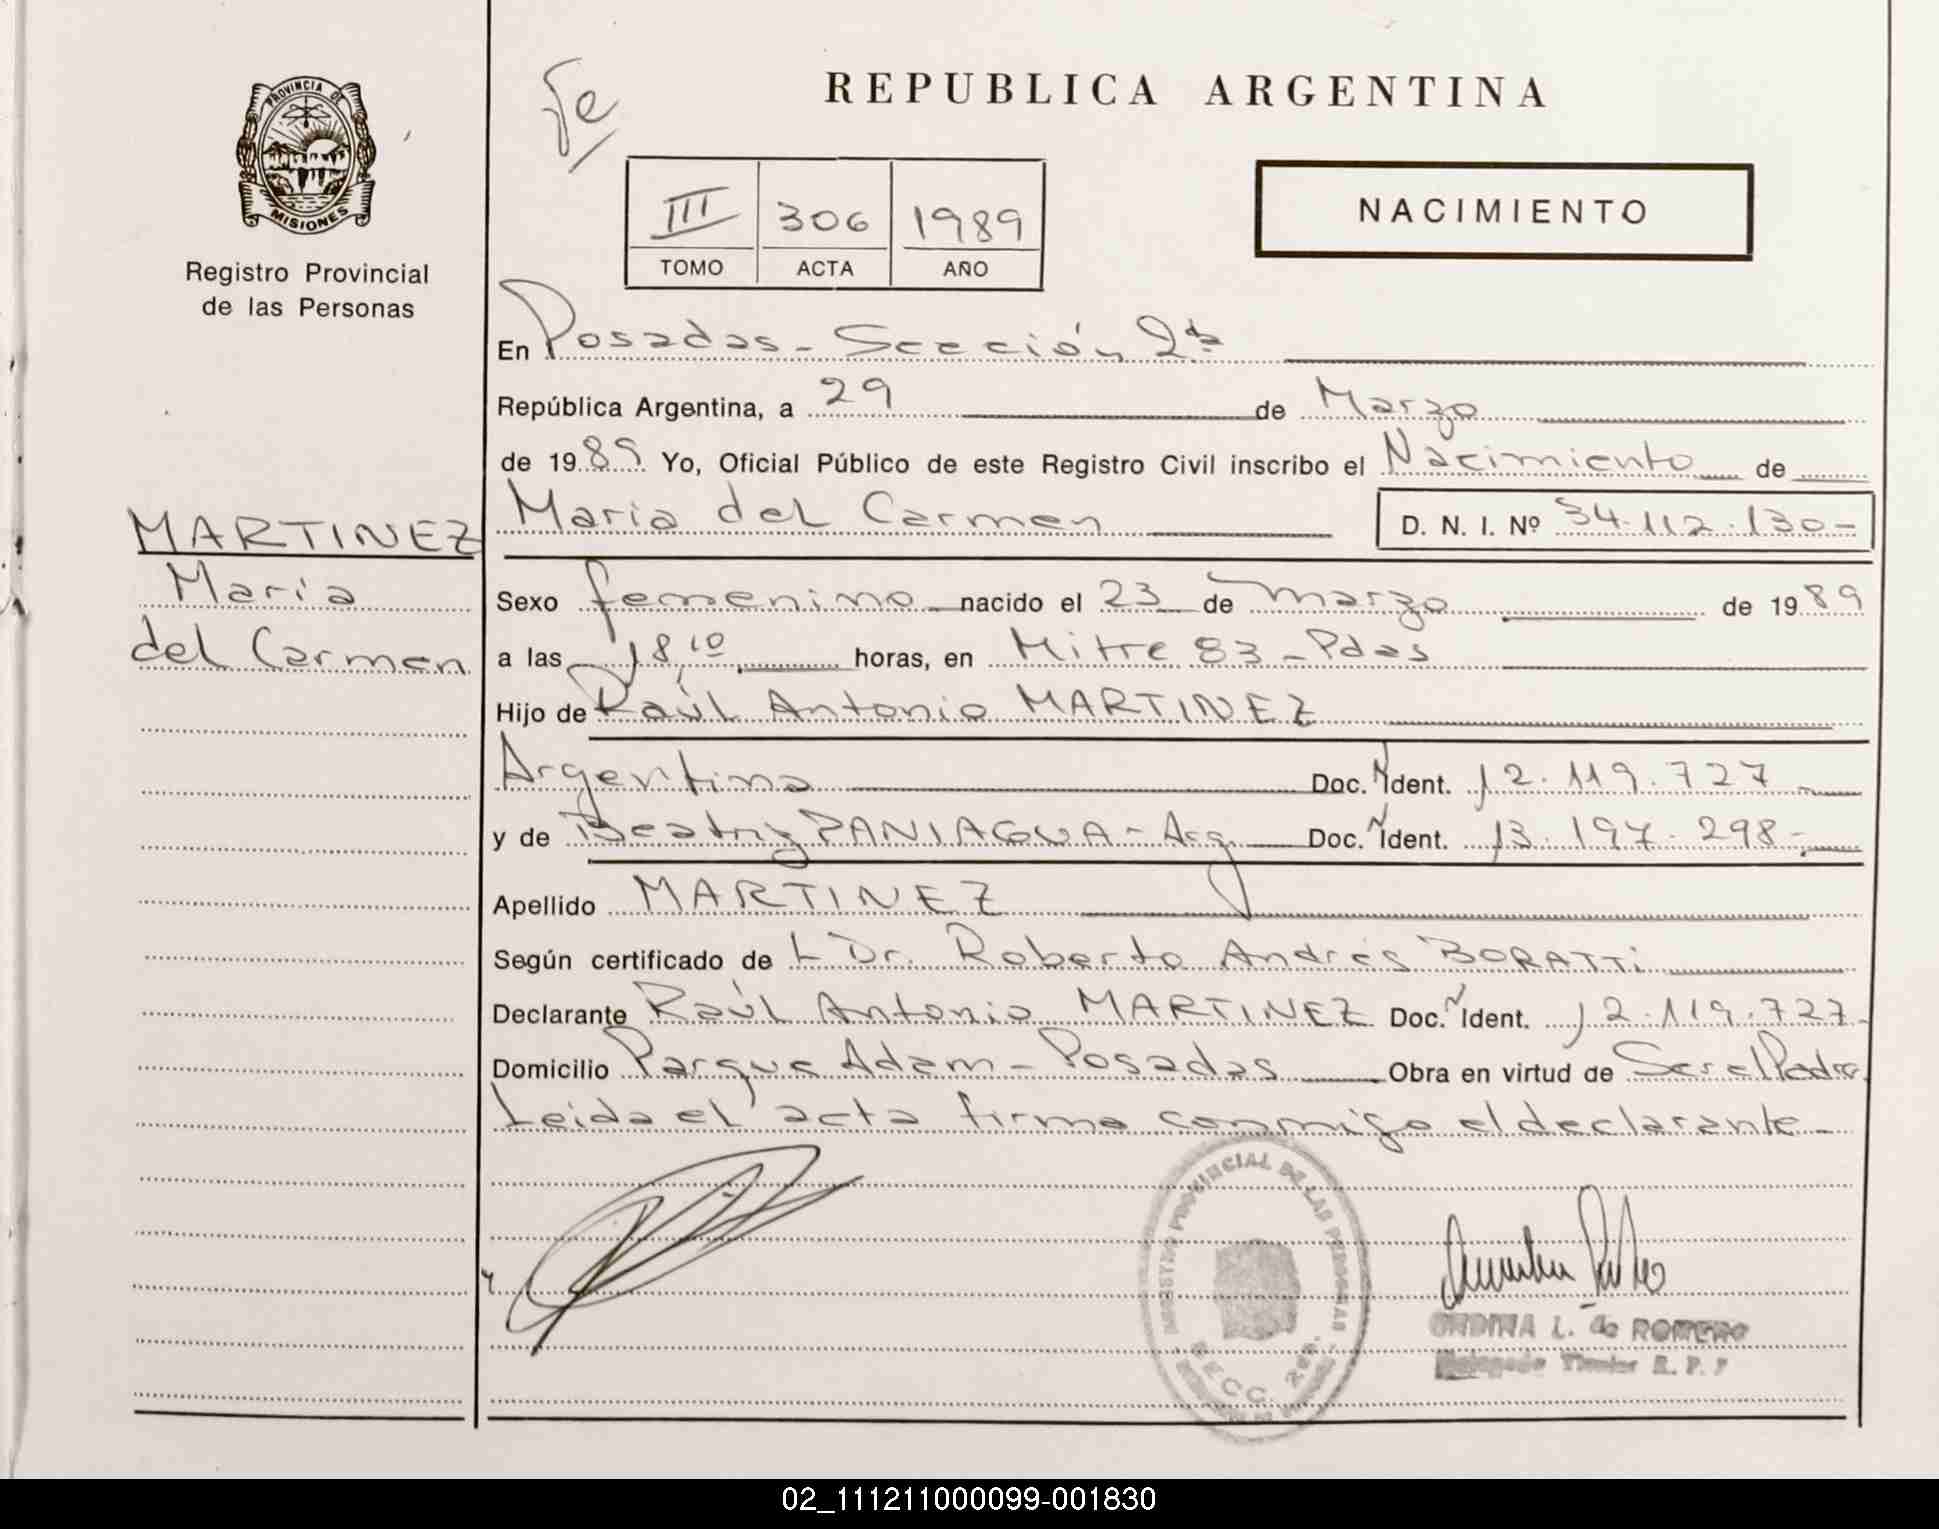 PROVINCIA DE
MISIONES
Registro Provincial
de las Personas
MARTINEZ
María
del Carmen
Fe
REPUBLICA ARGENTINA
III 306 1989
TOMO ACTA AÑO
NACIMIENTO
En Posadas - Sección 2da
República Argentina, a 29 de Marzo
de 1989 Yo, Oficial Público de este Registro Civil inscribo el Nacimiento de
María del Carmen D. N. I. Nº 34.112.130-
Sexo femenino nacido el 23 de marzo de 1989
a las 18,10 horas, en Mitre 83 - Pdas
Hijo de Raúl Antonio MARTINEZ
Argentino Doc. Ident. 12.119.727
y de Beatriz PANIAGUA - Arg. Doc. Ident. 13.197.298-
Apellido MARTINEZ
Según certificado de L Dr. Roberto Andrés BORATTI
Declarante Raúl Antonio MARTINEZ Doc. Ident. 12.119.727-
Domicilio Parque Adam - Posadas Obra en virtud de Ser el Padre.
Leida el acta firma conmigo el declarante.
REGISTRO PROVINCIAL DE LAS PERSONAS
SECC. 2da.
L. de ROMERO
Titular R. P. P
02_111211000099-001830